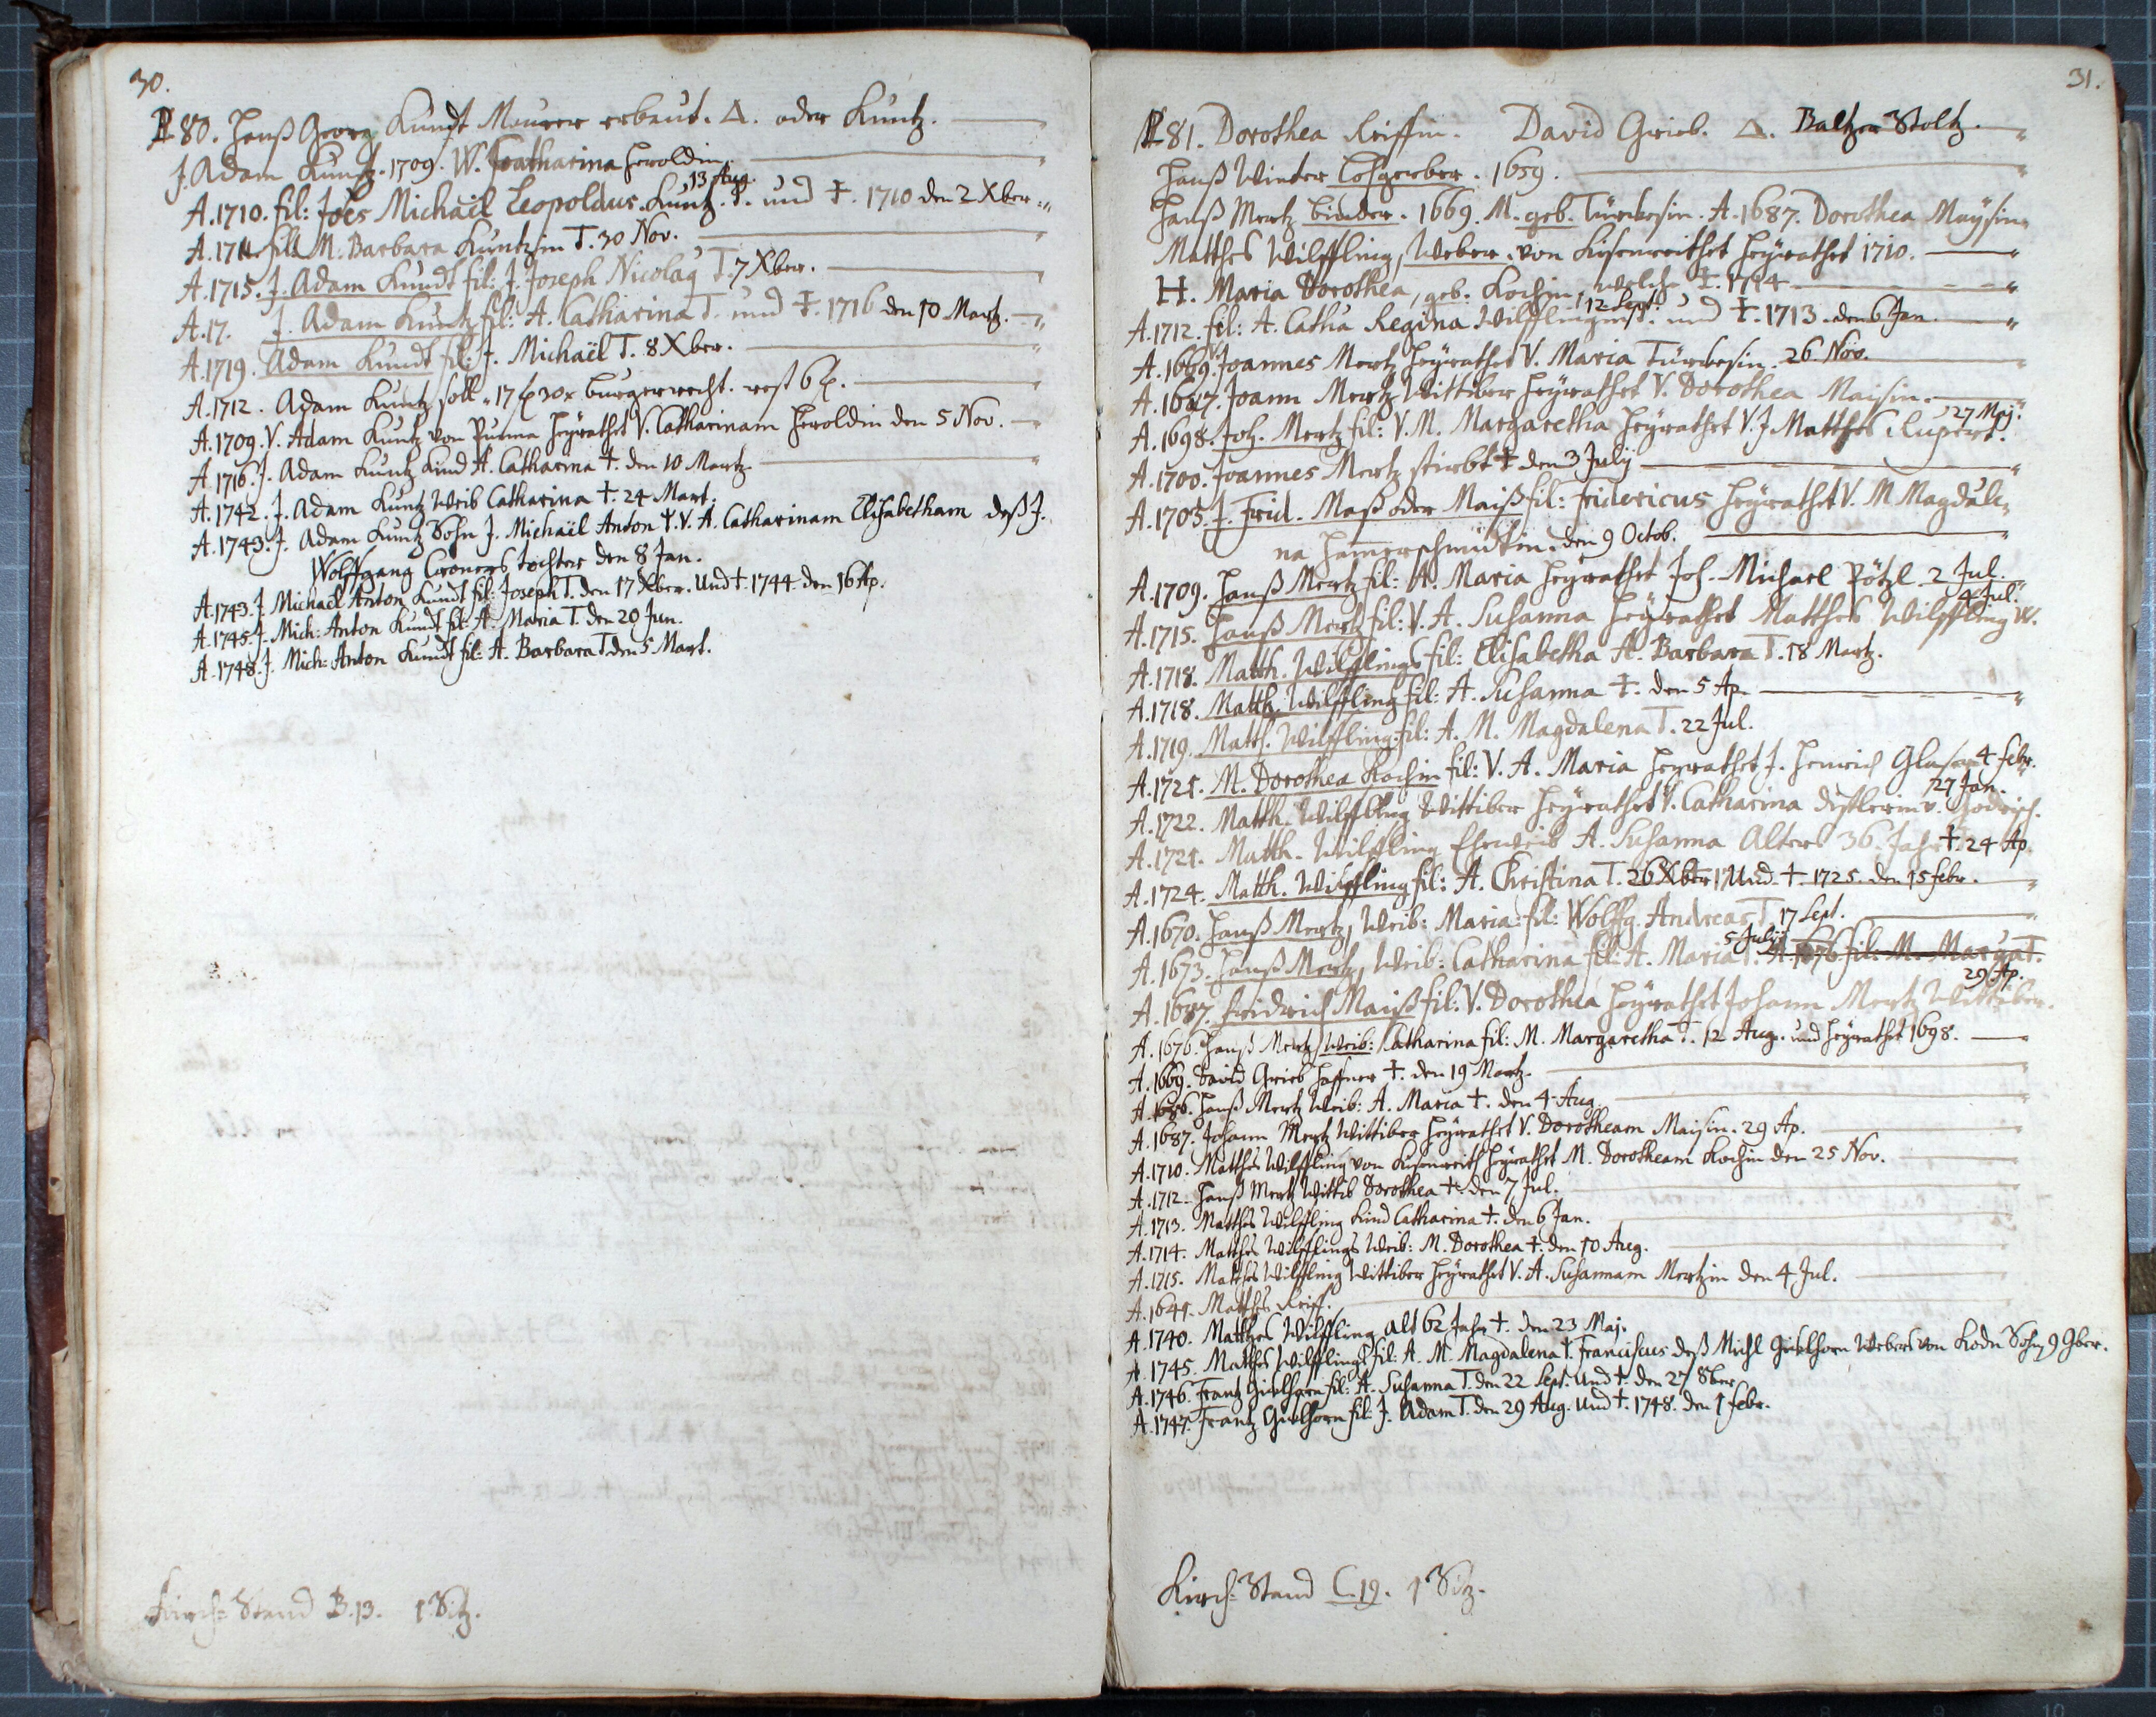 30.
80. Hanß Georg Kundt Maurer erbaut. Δ. oder Kuntz.
J. Adam Kuntz. 1709. W. Catharina Heroldin.
13 Aug.
A. 1710. fil: Joës Michaël Leopoldus Kuntz. T. und †. 1710 den 2 Xber.
A. 1711. fill M. Barbara Kuntzin T. 30 Nov.
A. 1715. J. Adam Kundt fil: J. Joseph Nicolaȳ T. 7 Xber.
A. 17. J. Adam Kuntz fil: A. Catharina T. und †. 1716 den 10 Martz.
A. 1719. Adam Kundt fil: J. Michaël T. 8 Xber.
A. 1712. Adam Kuntz soll 17 f 30 x burgerrecht. rest 6 f.
A. 1709. V. Adam Kuntz von heÿrathet V. Catharinam Heroldin den 5 Nov.
A. 1716. J. Adam Kuntz Kind A. Catharina †. den 10 Martz.
A. 1742. J. Adam Kuntz Weib Catharina †. 24 Mart.
A. 1743. J. Adam Kuntz Sohn J. Michaël Anton V. A. Catharinam Elisabetham deß J.
Wolffgang Croners tochter den 8 Jan.
A. 1743. J. Michaël Anton Kundt fil: Joseph T. den 17 Xber. Und † 1744 den 16 Ap.
A. 1745. J. Mich: Anton Kundt fil: A. Maria T. den 20 Jun.
A. 1748. J. Mich: Anton Kundt fil: A. Barbara T. den 5 Mart.
Kirch=Stand B. 13. 1 Sitz.
31.
81. Dorothea Reiffin. David Grieb. Δ. Baltzer Stoltz.
Hanß Winter Lohgerber. 1659.
Hanß Mertz binder. 1669. M. geb. Türckesin. A. 1687. Dorothea Maÿsin
Matthes Wilffling, Weber. von heÿrathet 1710.
H. Maria Dorothea, geb. Kochin, welche †. 1714
12 Sept.
A. 1712. fil: A. Catha Regina Wilfflingin T. und †. 1713. den 6 Jan.
A. 1669. V. Joannes Mertz heÿrathet V. Maria Türckesin. 26 Nov.
A. 1687. Joann Mertz Wittiber heÿrathet V. Dorothea Maisin.
27 Maj.
A. 1698. Joh. Mertz fil: V. M. Margaretha heÿrathet V. J. Matthes Rupert.
A. 1700. Joannes Mertz stirbt † den 3 Julÿ
A. 1705. J. Frid. Maß oder Maiß fil: Fridericus heÿrathet V. M Magdale
na Hamerschmidtin. den 9 Octob.
A. 1709. Hanß Mertz fil: A. Maria heÿrathet Joh. Michael Pötzl 2 Jul.
4 Jul.
A. 1715. Hanß Mertz fil: V. A. Susanna heÿrathet Matthes Wilffling W.
A. 1718. Matth. Wilfflings fil: Elisabetha A. Barbara T. 18 Martz.
A. 1718. Matth. Wilffling fil: A. Susanna †. den 5 Ap.
A. 1719. Matth. Wilffling fil: A. M. Magdalena T. 22 Jul.
A. 1721. M. Dorothea Kochin fil: V. A. Maria heÿrathet J. Henrich Glaser 4 febr.
27 Jan.
A. 1722. Matth. Wilffling Wittiber heÿrathet V. Catharina
A. 1721. Matth. Wilffling Eheweib A. Susanna Alter 36 Jahr † 24 Ap.
A. 1724. Matth. Wilffling fil: A. Christina T. 26 Xber Und †. 1725. den 15 febr.
A. 1670. Hanß Mertz, Weib: Maria: fil: Wolffg. Andreas T. 17 Sept.
5 Julÿ
A. 1673. Hanß Mertz, Weib: Catharina fil: A. Maria T. A. 1676 fil: M. Marga T.
29 Ap.
A. 1687. fridrich Maiß fil: V. Dorothea heÿrathet Johann Mertz Wittiber.
A. 1676. Hanß Mertz Weib: Catharina fil: M. Margaretha T. 12 Aug. und heÿrathet 1698.
A. 1669. David Grieb Haffner †. den 19 Martz.
A. 1686. Hanß Mertz Weib: A. Maria †. den 4 Aug.
A. 1687. Johann Mertz Wittiber heÿrathet V. Dorotheam Maisin. 29 Ap.
A. 1710. Matthes Wilffling von heÿrathet M. Dorotheam Kochin den 25 Nov.
A. 1712. Hanß Mertz Wittib Dorothea †. den 7 Jul.
A. 1713. Matthes Wilffling Kind Catharina †. den 6 Jan.
A. 1714. Matthes Wilfflings Weib: M. Dorothea †. den 10 Aug.
A. 1715. Matthes Wilffling Wittiber heÿrathet V. A. Susannam Mertzin den 4 Jul.
A. 1641. Matthes Reiff.
A. 1740. Matthes Wilffling alt 62 Jahr †. den 23 Maj.
A. 1745. Matthes Wilfflings fil: A. M. Magdalena Franciscus deß Michl Gicklhorn Webers von Sohn 9 9ber.
A. 1746. Frantz Gicklhorn fil: A. Susanna T. den 22 Sept. Und †. den 27 8ber
A. 1747. Frantz Gicklhorn fil: J. Adam T. den 29 Aug. Und †. 1748. den 1 febr.
Kirch=Stand C. 19. 1 Sitz.